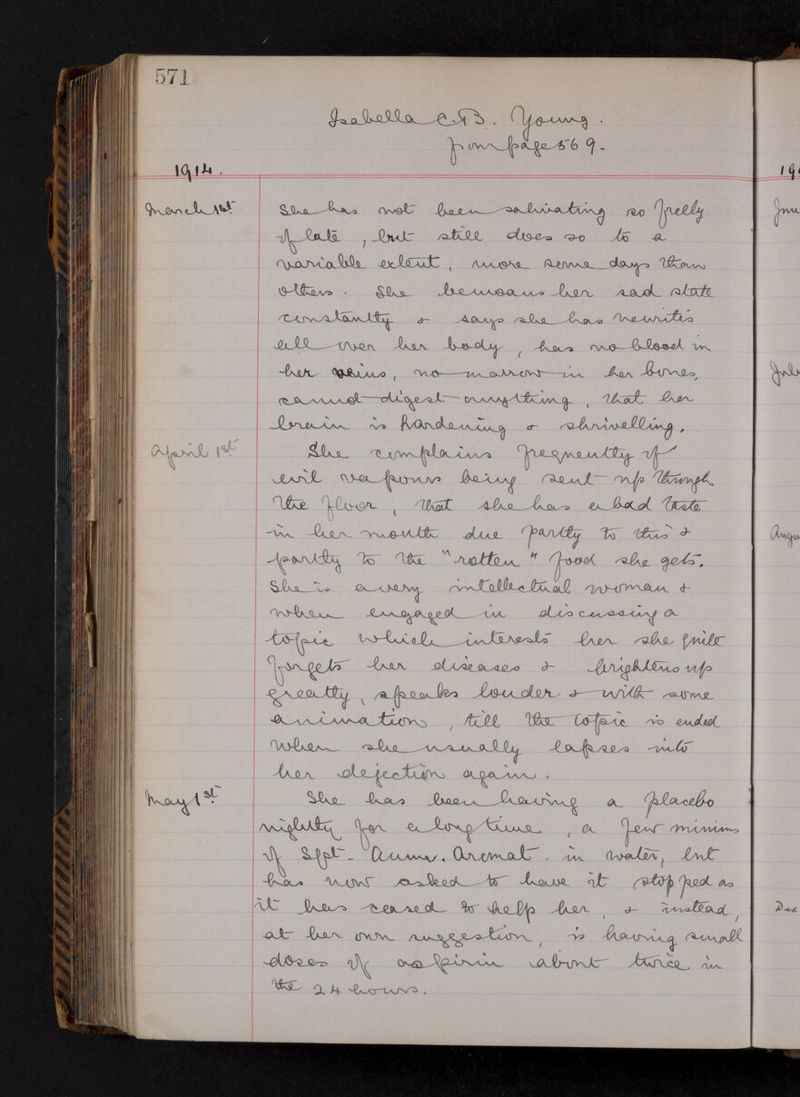 571
Isabella C.B. Young.
from page 569.
1914.
March 1st She has not been salivating so freely
of late, but still does so to a
variable extent, more some days than
others. She bemoans her sad state
constantly & says she has neuritis
all over her body, has no blood in
her veins, no marrow in her bones,
cannot digest anything, that her
brain is hardening & shrivelling.
April 1st She complains frequently of
evil vapours being sent up through
the floor, that she has a bad taste
in her mouth due partly to this &
partly to the "rotten" food she gets.
She is a very intellectual woman &
when engaged in discussing a
topic which interests her she quite
forgets her diseases & brightens up
greatly, speaks louder & with some
animation, till the topic is ended
when she usually lapses into
her dejection again.
May 1st She has been having a placebo
nightly for a long time, a few minims
of Spt. Ammon. Aromat. in water, but
has now asked to have it stopped as
it has ceased to help her, & instead,
at her own suggestion, is having small
doses of aspirin about twice in
the 24 hours.
19
Jun
Jul
Augu
Dec